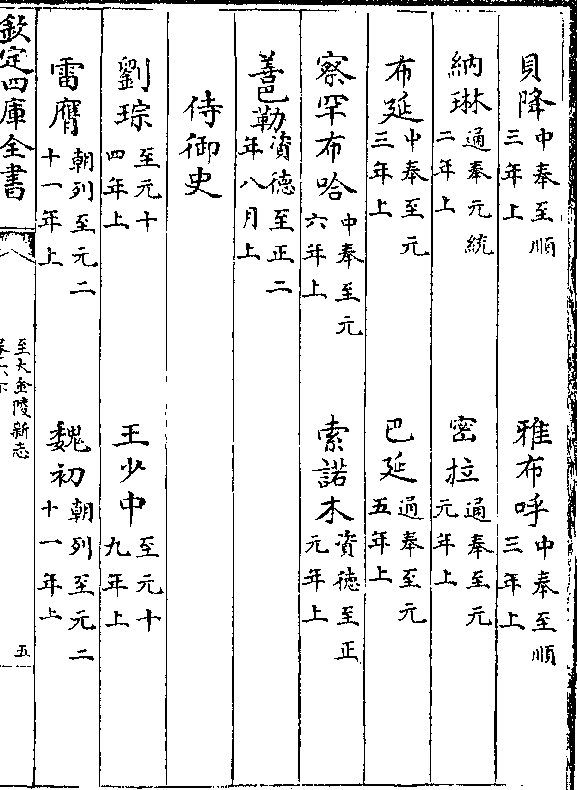 貝降中奉至順三年上　雅布呼中奉至順三年上
納琳通奉元統二年上　密拉通奉至元元年上
布延中奉至元三年上　巴延通奉至元五年上
察罕布哈中奉至元六年上　索諾木資德至正元年上
善巴勒資德至正二年八月上
侍御史
劉琮至元十四年上　王少中至元十九年上
雷膺朝列至元二十一年上　魏初朝列至元二十一年上
欽定四庫全書
至大金陵新志
卷六下
五